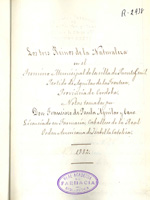 R-2438
Los tres Reinos de la Naturaleza
en el
Término Municipal de la villa de
Partido de Aguilar de la Frontera
Provincia de Cordoba
Notas tomadas por
Don Francisco de Paula
Licenciado en Farmacia, Caballero de la Real
Orden Americana de Isabel la Católica
1882
FARMACIA